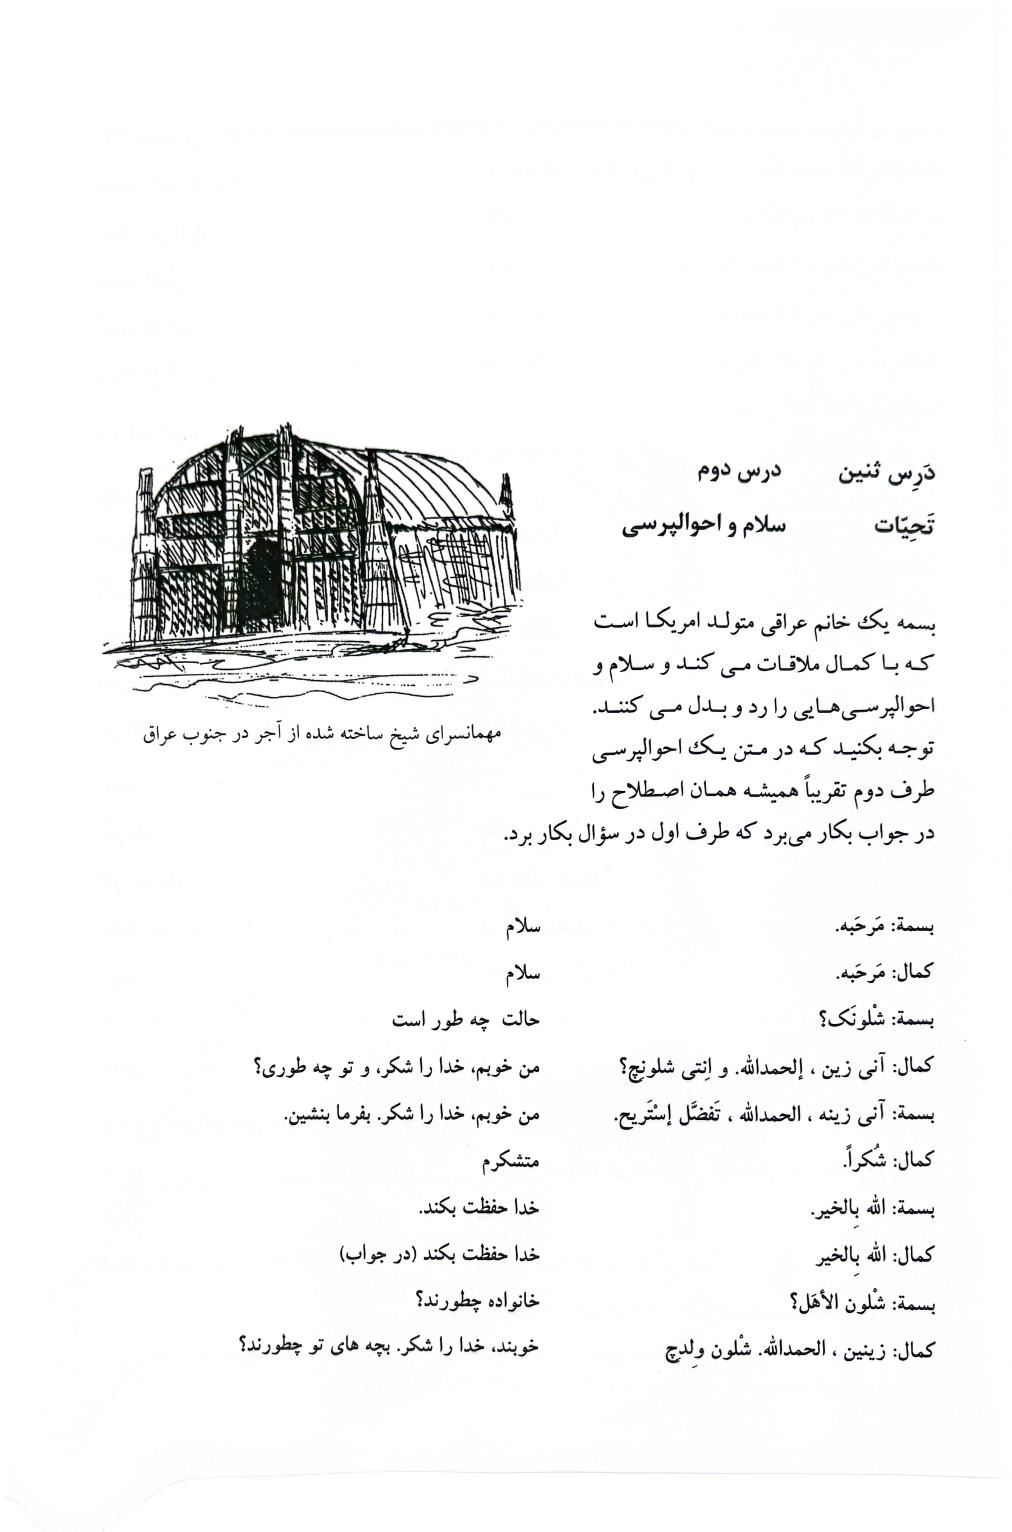 دَرِس ثنین درس دوم
تَحِیّات سلام و احوالپرسی
بسمه یك خانم عراقی متولد امریکا است
که با کمال ملاقات می کند و سلام و
احوالپرسی‌هایی را رد و بدل می کنند.
توجه بکنید که در متن یک احوالپرسی
طرف دوم تقریباً همیشه همان اصطلاح را
در جواب بکار می‌برد که طرف اول در سؤال بکار برد.
مهمانسرای شیخ ساخته شده از آجر در جنوب عراق
بسمة: مَرحَبه. سلام
کمال: مَرحَبه. سلام
بسمة: شْلونَک؟ حالت چه طور است
کمال: آنی زین ، إلحمدالله. و اِنتی شلونِچ؟ من خوبم، خدا را شکر، و تو چه طوری؟
بسمة: آنی زینه ، الحمدالله ، تَفضَّل إسْتَریح. من خوبم، خدا را شکر. بفرما بنشین.
کمال: شُکراً. متشکرم
بسمة: الله بِالخیر. خدا حفظت بکند.
کمال: الله بِالخیر خدا حفظت بکند (در جواب)
بسمة: شْلون الأهَل؟ خانواده چطورند؟
کمال: زینین ، الحمدالله. شْلون وِلدِچ خوبند، خدا را شکر. بچه های تو چطورند؟